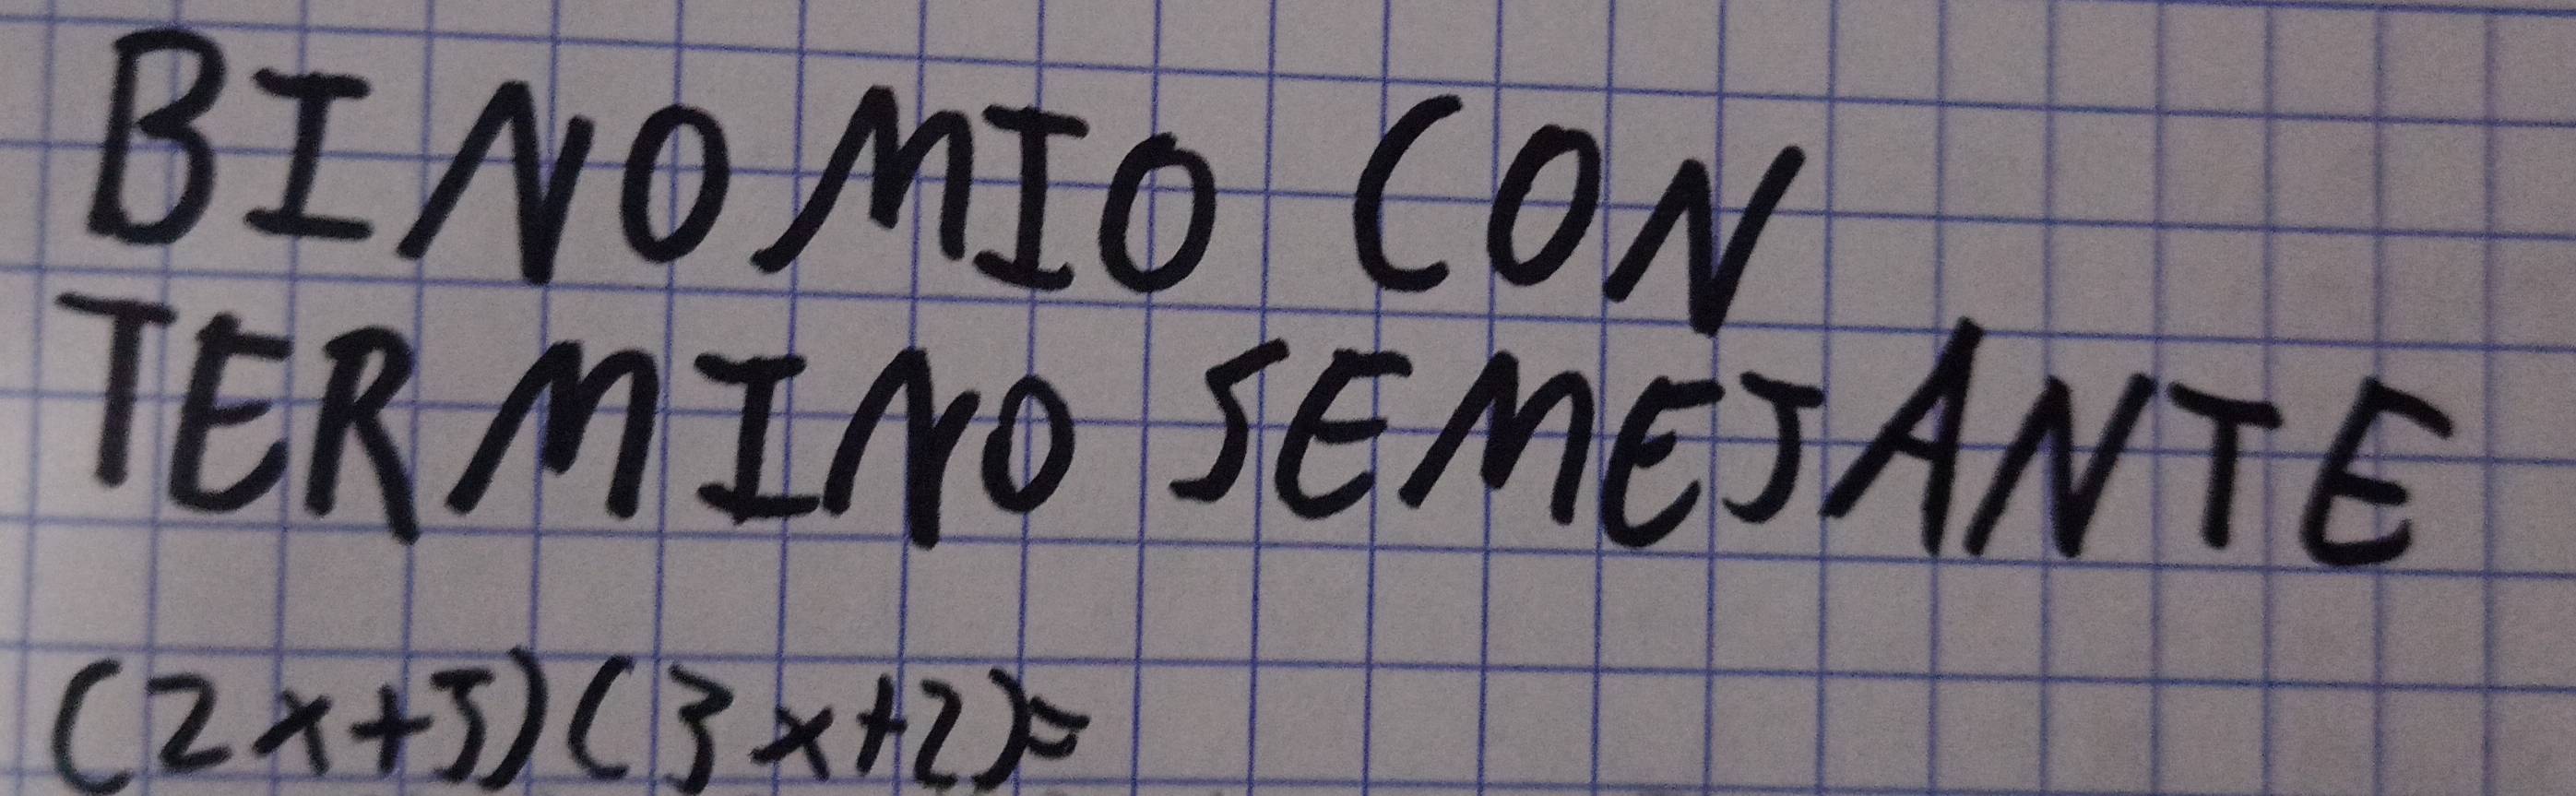 BINOMIO CON
TERMINO SEMEJANTE
(2x+5)(3x+2)=